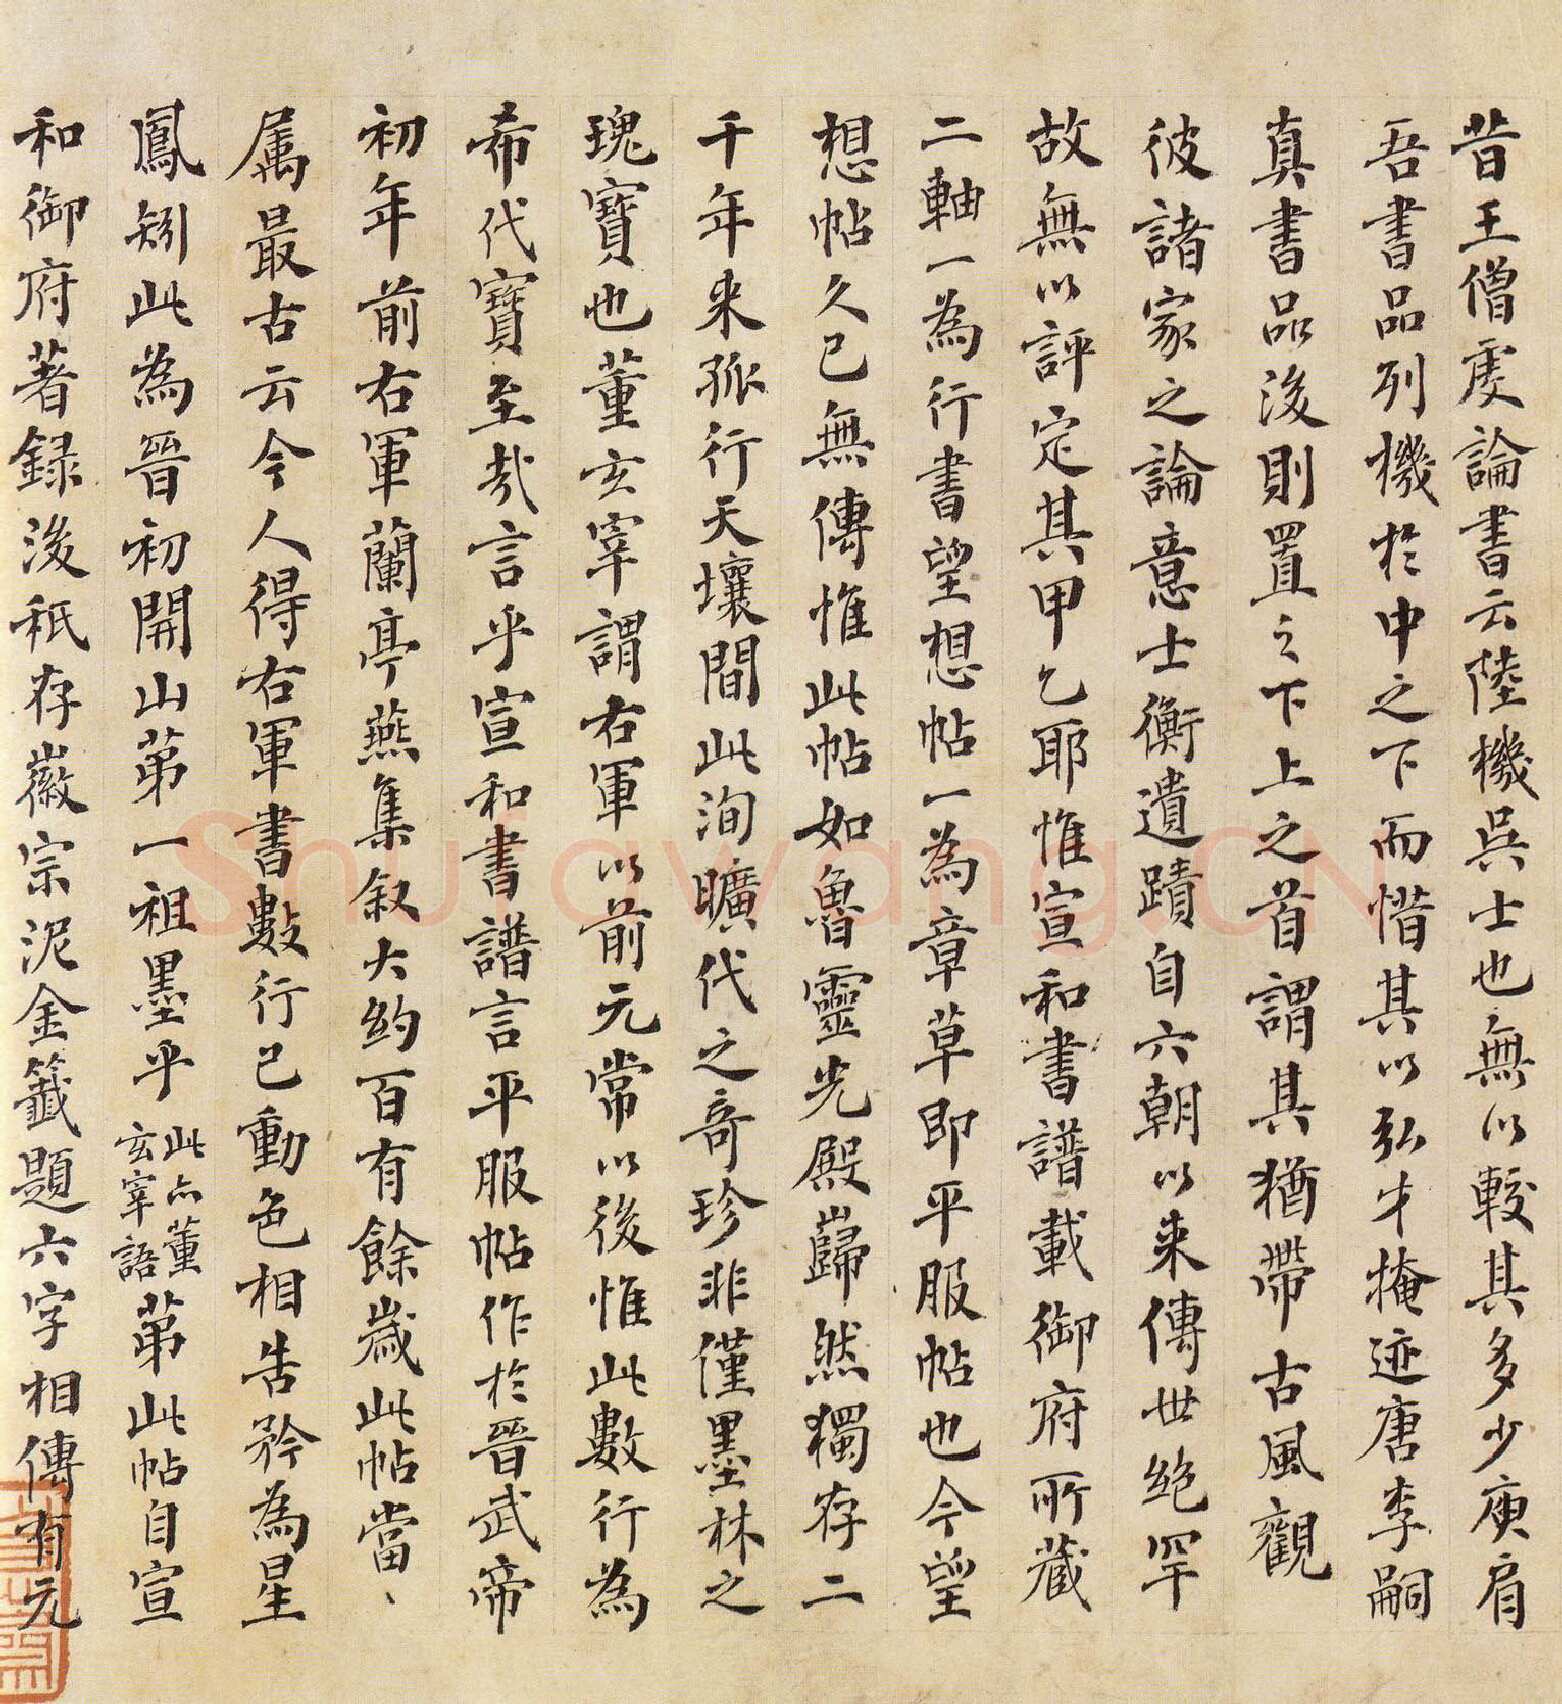 昔王僧虔論書云陸機吳士也無以較其多少庾肩
吾書品列機於中之下而惜其以弘才掩迹唐李嗣
真書品後則置之下上之首謂其猶帶古風觀
彼諸家之論意士衡遺蹟自六朝以来傳世絶罕
故無以評定其甲乙耶惟宣和書譜載御府所藏
二軸一為行書望想帖一為章草即平服帖也今望
想帖久已無傳惟此帖如魯靈光殿巋然獨存二
千年来孤行天壤間此洵曠代之奇珍非僅墨林之
瑰寶也董玄宰謂右軍以前元常以後惟此數行為
希代寶至哉言乎宣和書譜言平服帖作於晉武帝
初年前右軍蘭亭燕集叙大約百有餘歲此帖當丶
属最古云今人得右軍書數行已動色相告矜為星
鳳矧此為晉初開山第一祖墨乎此亦董玄宰語第此帖自宣
和御府著録後秖存徽宗泥金籤題六字相傳有元
Shufawang.CN